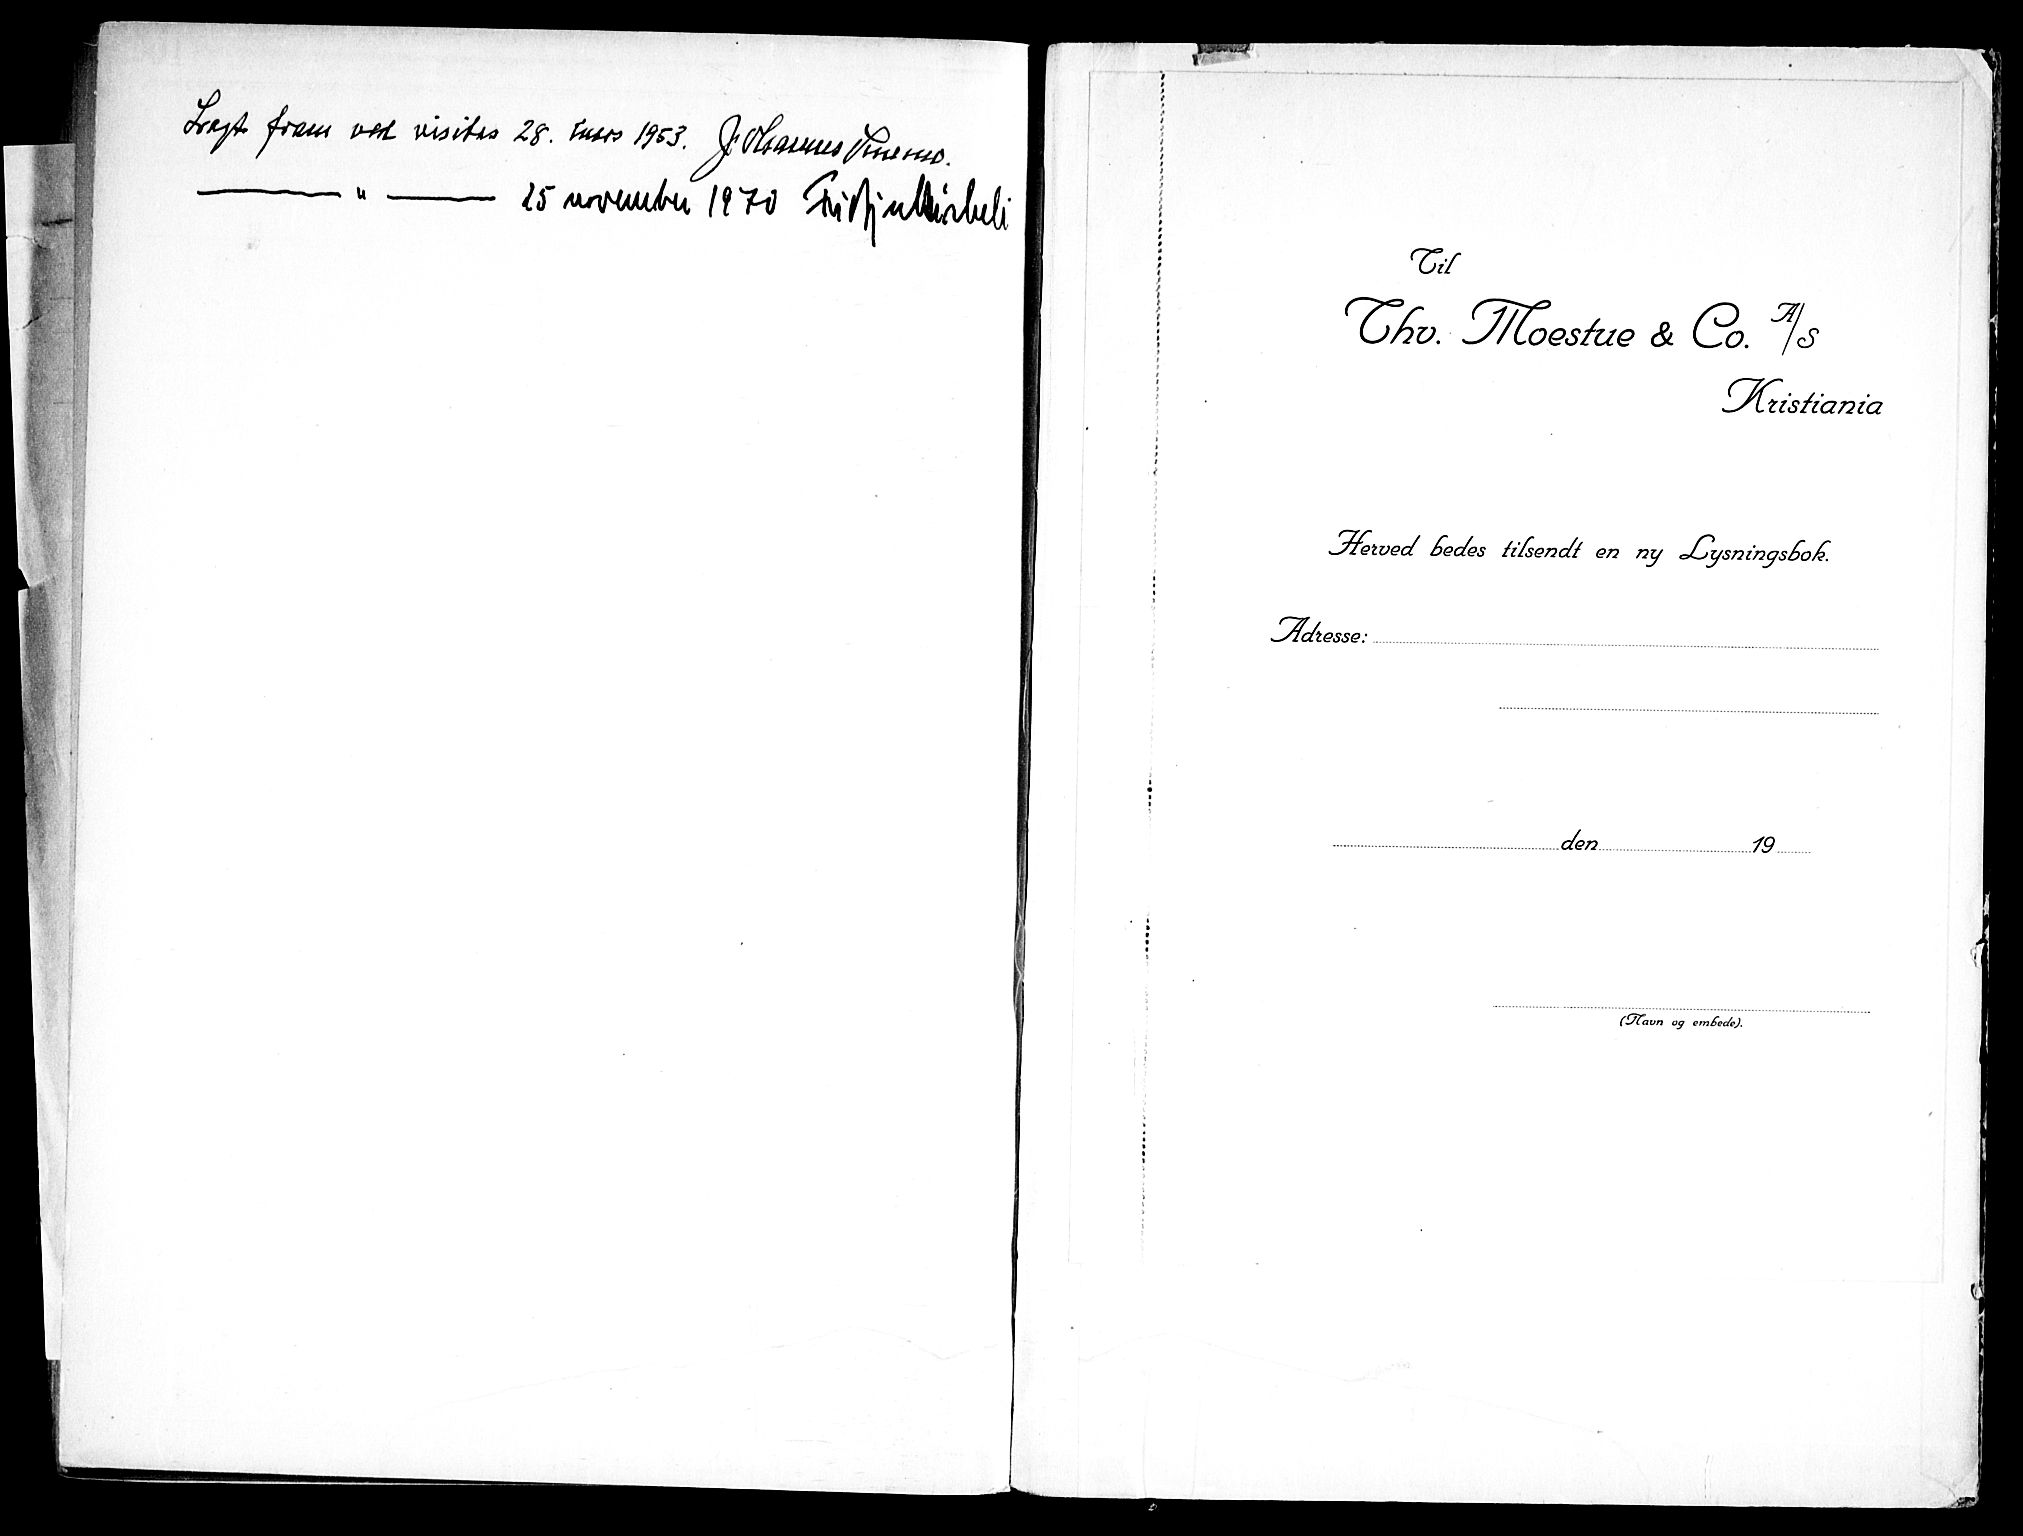 Lagt fram ved visitas 28. mars 1953. Johannes Smemo.
— " — 25 november 1970 Fridtjov Birkeli
Til
Thv. Moestue & Co. A/S
Kristiania
Herved bedes tilsendt en ny Lysningsbok.
Adresse:
den 19
(Navn og embede).